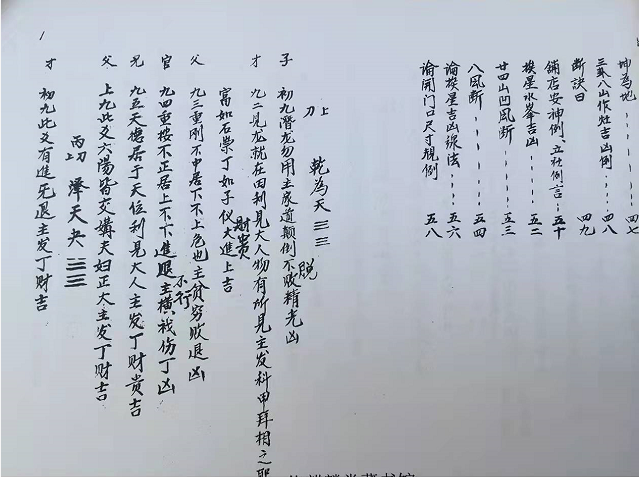 坤為地----四七
三郊八山作灶吉凶例--四八
断訣曰----四九
鋪店安神例、立社例言--五十
挨星水峯吉凶---五二
廿四山凹風断---五三
八風断-----五四
論挨星吉凶線法---五六
論開門口尺寸規例  五八
上 乾為天 ☰☰ 脱
刀
子 初九潜龙勿用主家道颠倒不收精光凶
才 九二見龙就在田利見大人物有所見主发科甲耳相之
富如石崇丁如子仪大進上吉
財貴
父 九三重刚不中居下不上危也主貧穷败退凶
不行
官 九四重按不正居上不下進退主横祸伤丁凶
兄 九五天德居于天位利見大人主发丁财贵吉
父 上九此爻六陽皆交媾夫妇正大主发丁财吉
丙 澤天夬 ☱☰
才 初九此爻有進无退主发丁财吉